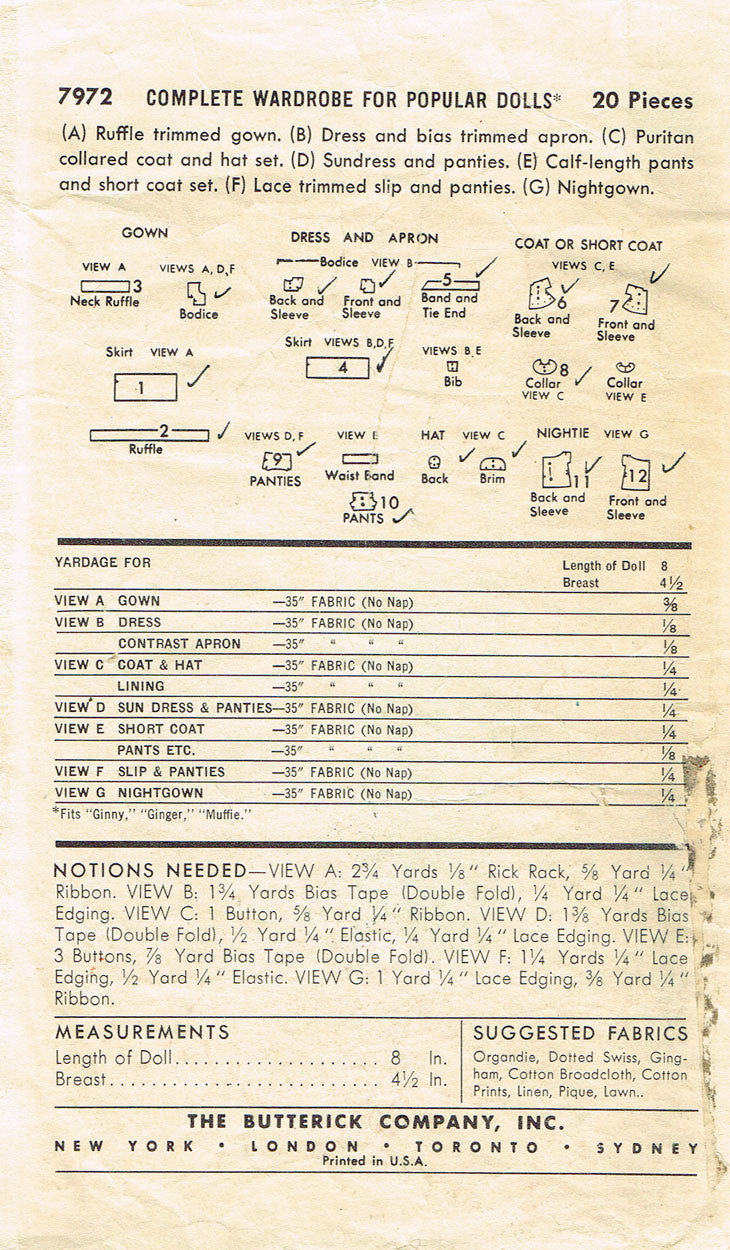 7972 COMPLETE WARDROBE FOR POPULAR DOLLS* 20 Pieces
(A) Ruffle trimmed gown. (B) Dress and bias trimmed apron. (C) Puritan
collared coat and hat set. (D) Sundress and panties. (E) Calf-length pants
and short coat set. (F) Lace trimmed slip and panties. (G) Nightgown.
GOWN
VIEW A VIEWS A, D, F
3
Neck Ruffle
Bodice
Skirt VIEW A
1
2
Ruffle
DRESS AND APRON
Bodice VIEW B
Back and Sleeve
Front and Sleeve
5
Band and Tie End
Skirt VIEWS B,D,F
4
VIEWS B, E
Bib
COAT OR SHORT COAT
VIEWS C, E
6
Back and Sleeve
7
Front and Sleeve
8
Collar VIEW C
Collar VIEW E
VIEWS D, F
9
PANTIES
VIEW E
Waist Band
10
PANTS
HAT VIEW C
Back
Brim
NIGHTIE VIEW G
11
Back and Sleeve
12
Front and Sleeve
YARDAGE FOR Length of Doll 8
Breast 4½
VIEW A GOWN —35" FABRIC (No Nap) ⅜
VIEW B DRESS —35" FABRIC (No Nap) ⅛
CONTRAST APRON —35" " " " ⅛
VIEW C COAT & HAT —35" FABRIC (No Nap) ¼
LINING —35" " " " ¼
VIEW D SUN DRESS & PANTIES—35" FABRIC (No Nap) ¼
VIEW E SHORT COAT —35" FABRIC (No Nap) ¼
PANTS ETC. —35" " " " ⅛
VIEW F SLIP & PANTIES —35" FABRIC (No Nap) ¼
VIEW G NIGHTGOWN —35" FABRIC (No Nap) ¼
*Fits "Ginny," "Ginger," "Muffie."
NOTIONS NEEDED—VIEW A: 2¾ Yards ⅛" Rick Rack, ⅝ Yard ¼"
Ribbon. VIEW B: 1¾ Yards Bias Tape (Double Fold), ¼ Yard ¼" Lace
Edging. VIEW C: 1 Button, ⅝ Yard ¼" Ribbon. VIEW D: 1⅜ Yards Bias
Tape (Double Fold), ½ Yard ¼" Elastic, ¼ Yard ¼" Lace Edging. VIEW E:
3 Buttons, ⅞ Yard Bias Tape (Double Fold). VIEW F: 1¼ Yards ¼" Lace
Edging, ½ Yard ¼" Elastic. VIEW G: 1 Yard ¼" Lace Edging, ⅜ Yard ¼"
Ribbon.
MEASUREMENTS
Length of Doll.................... 8 In.
Breast............................ 4½ In.
SUGGESTED FABRICS
Organdie, Dotted Swiss, Ging-
ham, Cotton Broadcloth, Cotton
Prints, Linen, Pique, Lawn..
THE BUTTERICK COMPANY, INC.
NEW YORK • LONDON • TORONTO • SYDNEY
Printed in U.S.A.